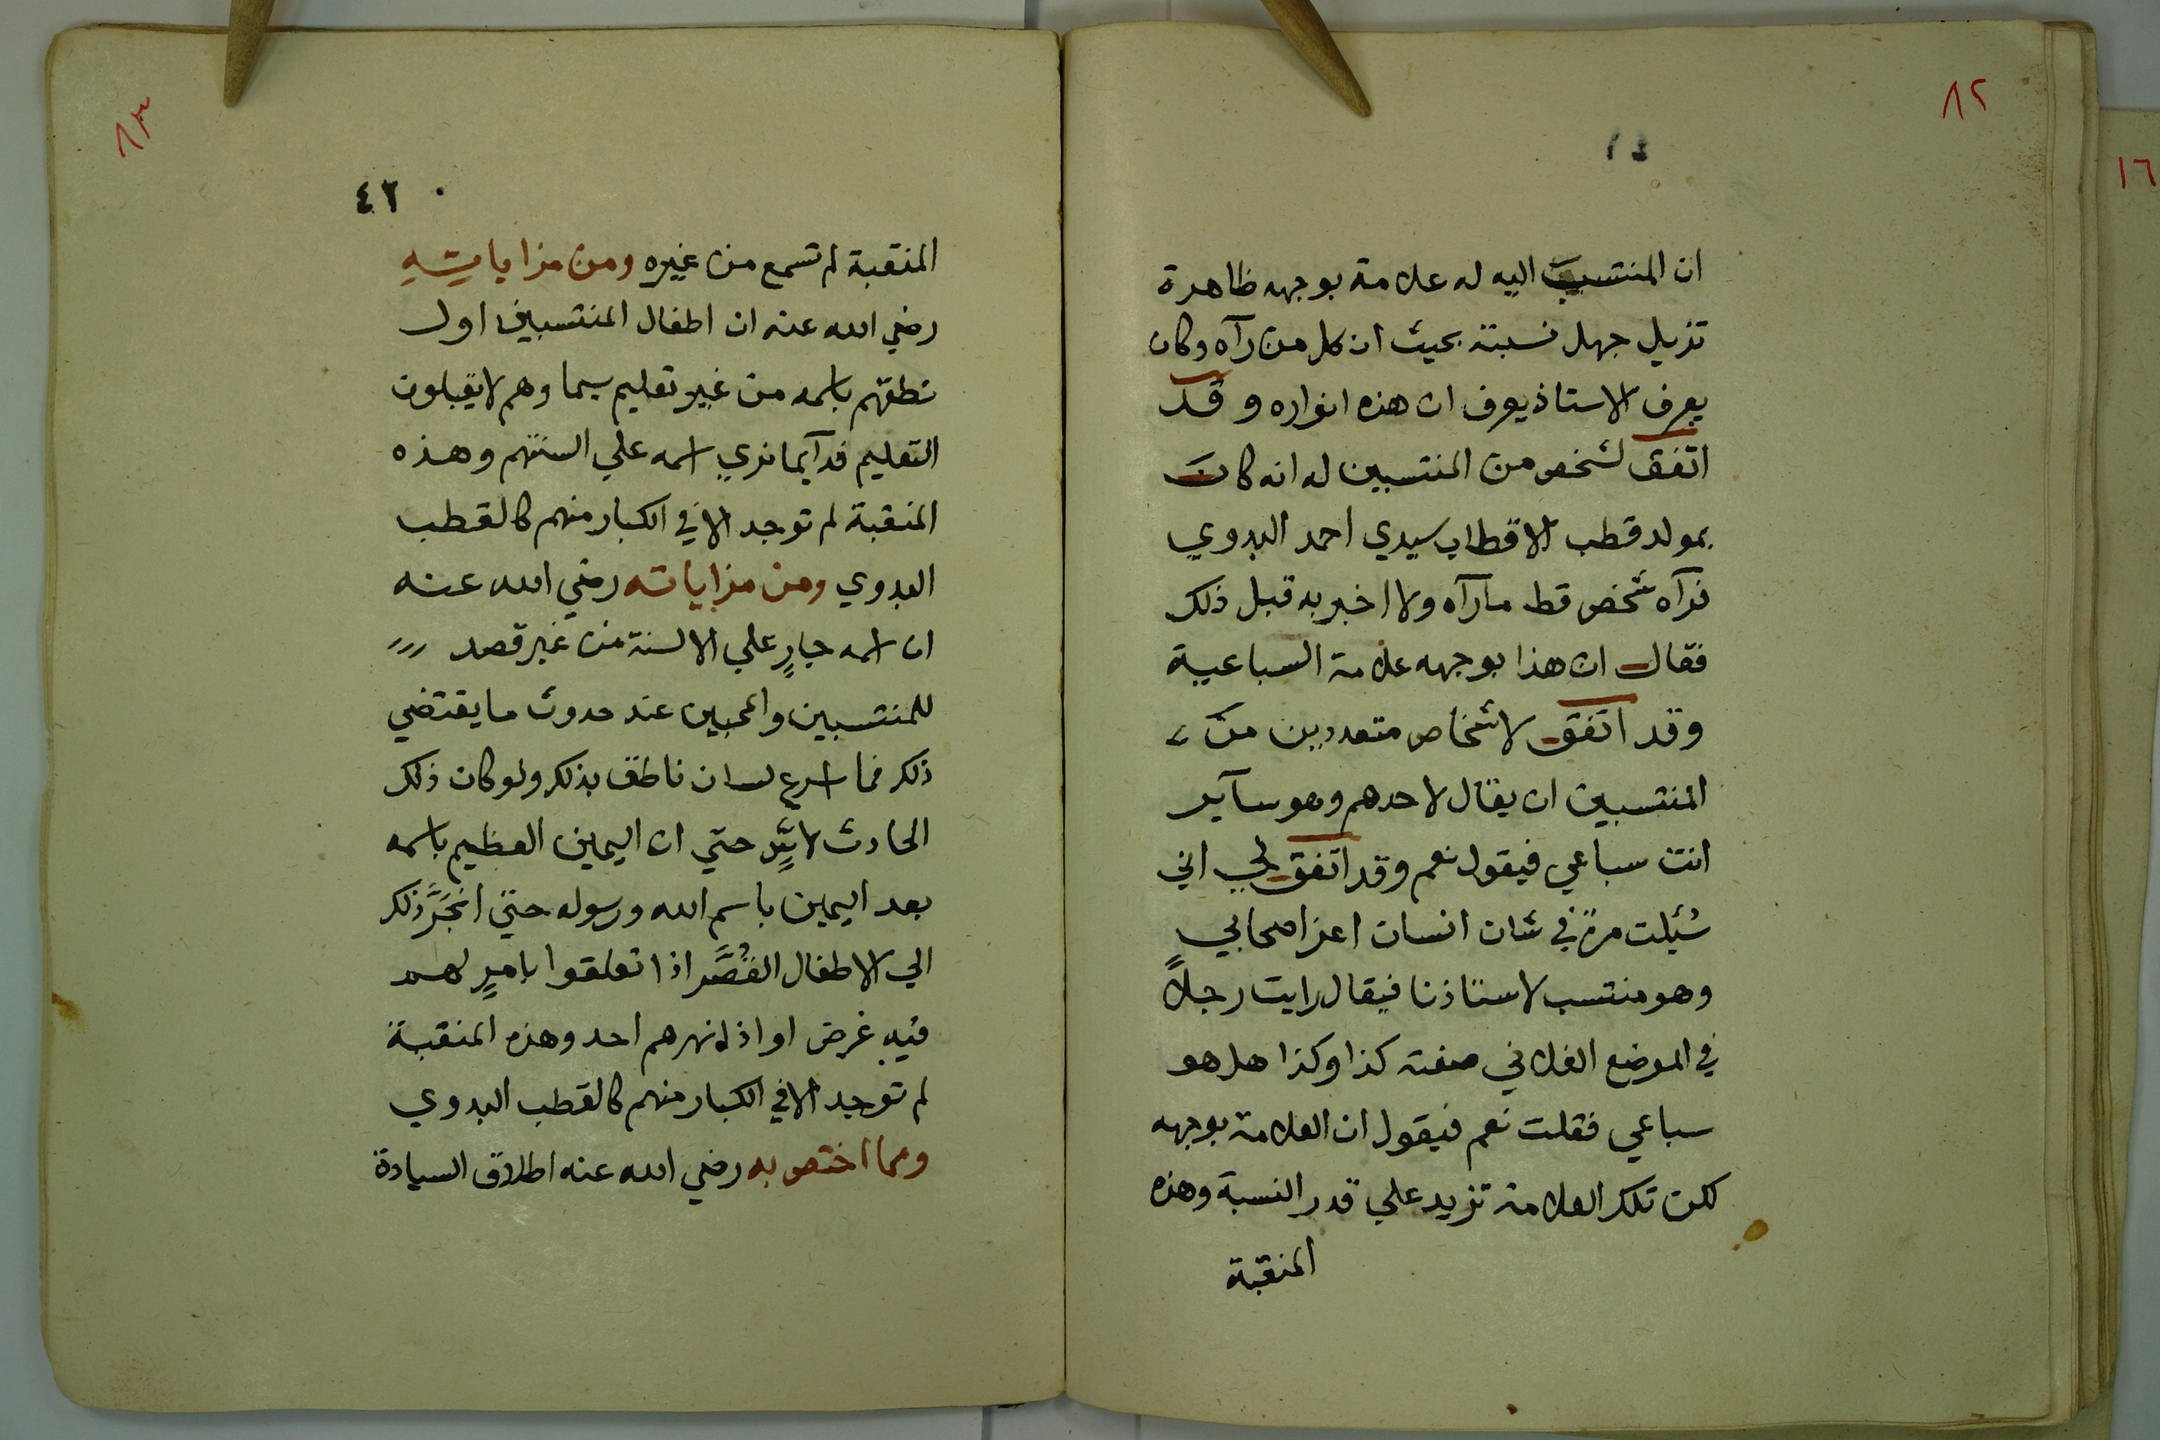 ٨٢
ان المنتسب اليه له علامة بوجهه ظاهرة
تزيل جهل نسبته بحيث ان كل من رآه وكان
يعرف الاستاذ يعرف ان هذه انواره وقد
اتفق لشخص من المنتسبين له انه كان
بمولد قطب الاقطاب سيدي احمد البدوي
فرآه شخص قط مارآه ولا اخبر به قبل ذلك
فقال ان هذا بوجهه علامة السباعية
وقد اتفق لاشخاص متعددين من
المنتسبين ان يقال لاحدهم وهو سآير
انت سباعي فيقول نعم وقد اتفق لي اني
سُئِلت مرة في شان انسان اعز اصحابي
وهو منتسب لاستاذنا فيقال رايت رجلاً
في الموضع الفلاني صفته كذا وكذا هل هو
سباعي فقلت نعم فيقول ان العلامة بوجهه
لكن تلك العلامة تزيد علي قدر النسبة وهذه
المنقبة
١٦
٨٣
٤٢
المنقبة لم تسمع من غيره ومن مزاياتِهِ
رضي الله عنه ان اطفال المنتسبين اول
نطقهم باسمه من غير تعليم سيما وهم لا يقبلون
التعليم فدآيما نري اسمه علي السنتهم وهذه
المنقبة لم توجد الا في الكبار منهم كالقطب
البدوي ومن مزاياته رضي الله عنه
ان اسمه جارٍ علي الالسنة من غير قصد
للمنتسبين والمحبين عند حدوث ما يقتضي
ذلك فما اسرع لسان ناطق بذلك ولو كان ذلك
الحادث حتي ان اليمين العظيم باسمه
بعد اليمين باسم الله ورسوله حتي انجَرَّ ذلك
الي الاطفال القُصَّر اذا تعلقوا بامرٍ لهم
فيه غرض او اذا نهرهم احد وهذه المنقبة
لم توجد الا في الكبار منهم كالقطب البدوي
ومما اختص به رضي الله عنه اطلاق السيادة